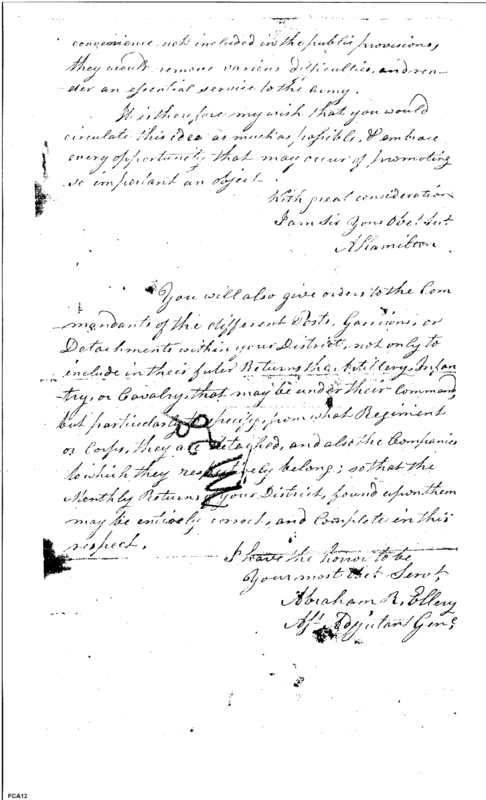 convenience not included in the public provisions,
they would remove various difficulties, and ren-
der an essential service to the army.
It is therefore my wish that you would
circulate this idea as much as possible, & embrace
every opportunity that may occur of promoting
so important an object.
With great consideration
I am Sir Your Obt. Servt.
A Hamilton
You will also give orders to the Com
mandants of the different Posts, Garrisons, or
Detachments within your District, not only to
include in their Returns the Artillery, Infan
try, or Cavalry, that may be under their Command,
but particularly to specify, from what Regiment
or Corps, they are detached, and also the Companies
to which they respectively belong; so that the
Monthly Returns of your District, found upon them
may be entirely correct, and Complete in this
respect.
I have the honor to be
Your most Obt. Servt,
Abraham R. Ellery
Asst. Adjutant Genl.
FCA12